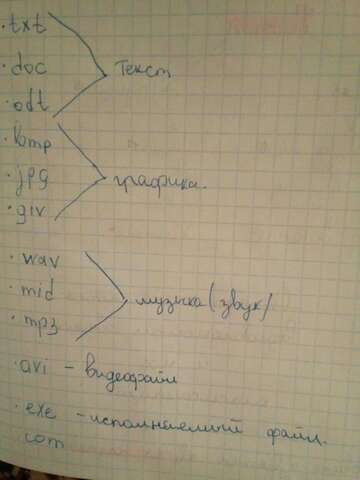 .txt
.doc Текст
.odt
.bmp
.jpg графика.
.giv
.wav
.mid музыка (звук)
.mp3
.avi - видеофайл
.exe - исполняемый файл.
.com